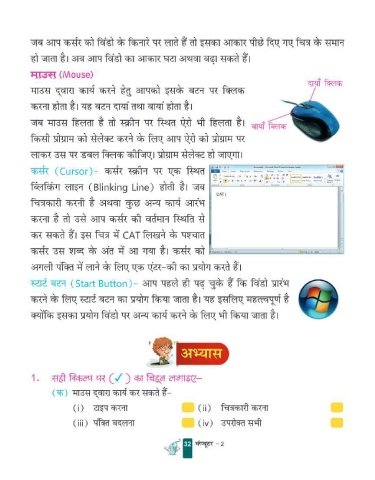 जब आप कर्सर को विंडो के किनारे पर लाते हैं तो इसका आकार पीछे दिए गए चित्र के समान
हो जाता है। अब आप विंडो का आकार घटा अथवा बढ़ा सकते हैं।
माउस (Mouse)
माउस द्वारा कार्य करने हेतु आपको इसके बटन पर क्लिक
करना होता है। यह बटन दायां तथा बायां होता है।
दायाँ क्लिक
जब माउस हिलता है तो स्क्रीन पर स्थित ऐरो भी हिलता है।
बायाँ क्लिक
किसी प्रोग्राम को सेलेक्ट करने के लिए आप ऐरो को प्रोग्राम पर
लाकर उस पर डबल क्लिक कीजिए। प्रोग्राम सेलेक्ट हो जाएगा।
कर्सर (Cursor)- कर्सर स्क्रीन पर एक स्थित
ब्लिंकिंग लाइन (Blinking Line) होती है। जब
चित्रकारी करनी है अथवा कुछ अन्य कार्य आरंभ
करना है तो उसे आप कर्सर की वर्तमान स्थिति से
कर सकते हैं। इस चित्र में CAT लिखने के पश्चात
कर्सर उस शब्द के अंत में आ गया है। कर्सर को
CAT|
अगली पंक्ति में लाने के लिए एक एंटर-की का प्रयोग करते हैं।
स्टार्ट बटन (Start Button)- आप पहले ही पढ़ चुके हैं कि विंडो प्रारंभ
करने के लिए स्टार्ट बटन का प्रयोग किया जाता है। यह इसलिए महत्त्वपूर्ण है
क्योंकि इसका प्रयोग विंडो पर अन्य कार्य करने के लिए भी किया जाता है।
अभ्यास
1. सही विकल्प पर (✓) का चिह्न लगाइए–
(क) माउस द्वारा कार्य कर सकते हैं-
(i) टाइप करना (ii) चित्रकारी करना
(iii) पंक्ति बदलना (iv) उपरोक्त सभी
32 कंप्यूटर - 2